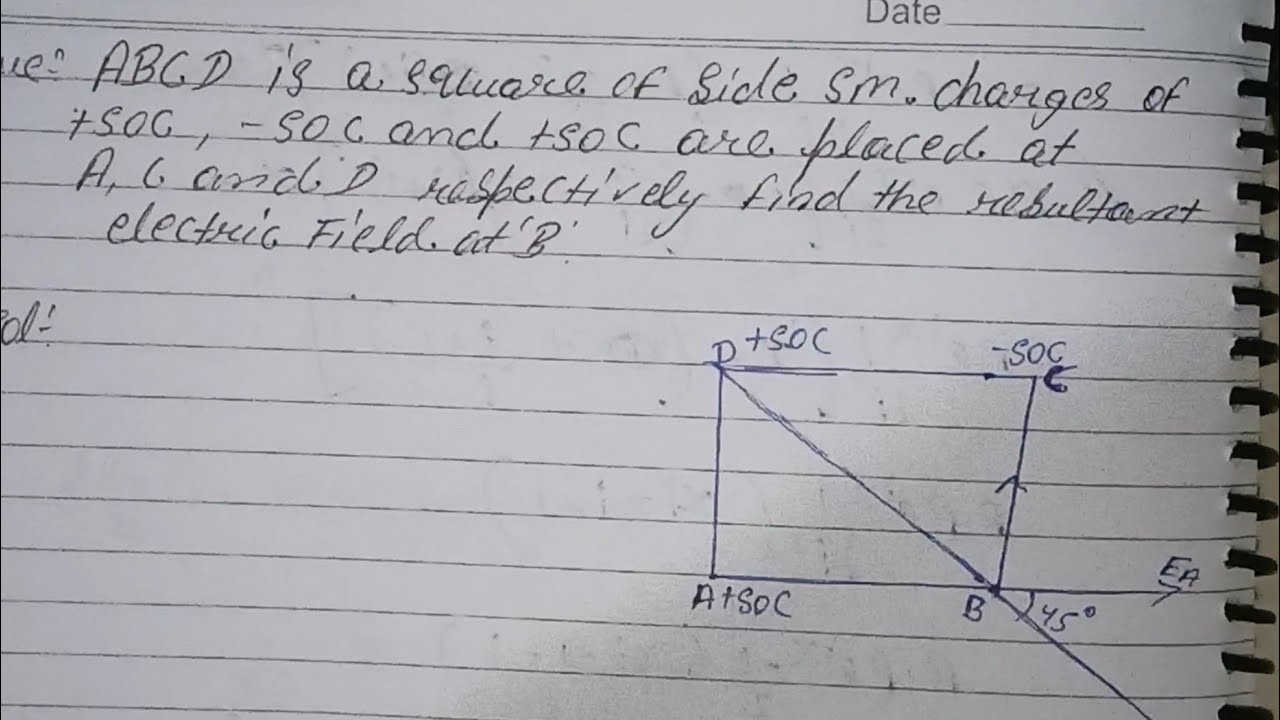 Date
ue:- ABCD is a square of side 5m. charges of
+50C, -50C and +50C are placed at
A, C and D respectively find the resultant
electric Field at 'B'.
Sol:-
D +50C
-50C
C
EA
A+50C
B
45°